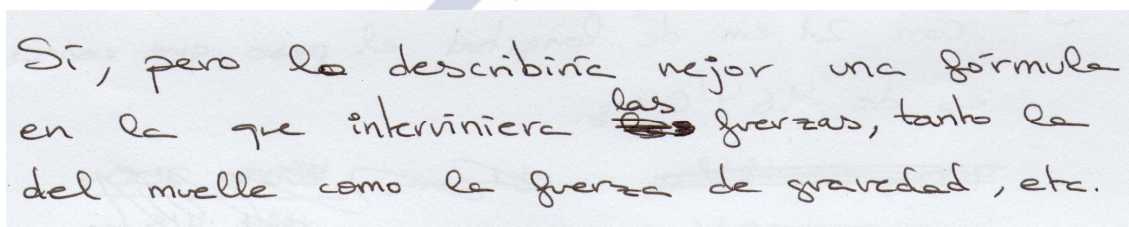 Sí, pero lo describiría mejor una fórmula
en la que interviniera las fuerzas, tanto la
del muelle como la fuerza de gravedad, etc.